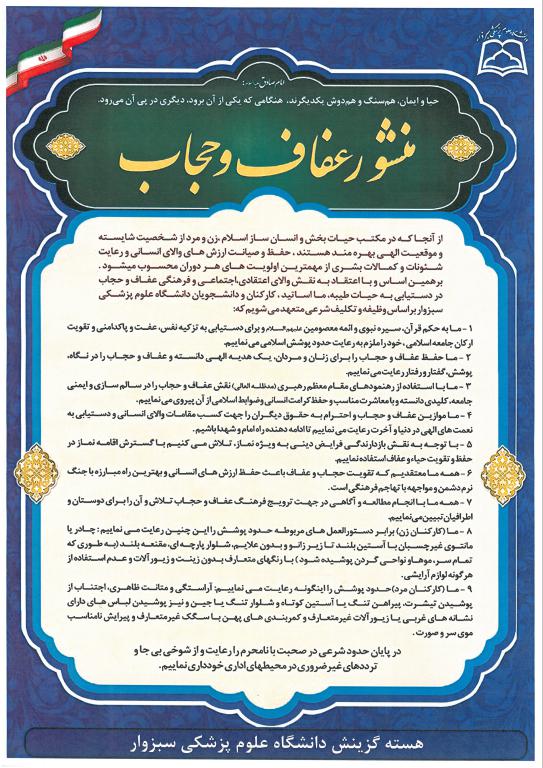 دانشگاه علوم پزشکی سبزوار
امام صادق علیه السلام:
حیا و ایمان، هم‌سنگ و هم‌دوش یکدیگرند، هنگامی که یکی از آن برود، دیگری در پی آن می‌رود.
منشور عفاف و حجاب
از آنجا که در مکتب حیات بخش و انسان ساز اسلام ،زن و مرد از شخصیت شایسته
و موقعیت الهی بهره مند هستند ، حفظ و صیانت ارزش های والای انسانی و رعایت
شئونات و کمالات بشری از مهمترین اولویت های هر دوران محسوب میشود .
برهمین اساس و با اعتقاد به نقش والای اعتقادی،اجتماعی و فرهنگی عفاف و حجاب
در دستیابی به حیات طیبه، ما اساتید ، کارکنان و دانشجویان دانشگاه علوم پزشکی
سبزوار بر اساس وظیفه و تکلیف شرعی متعهد می شویم که:
۱ - ما به حکم قرآن، سیره نبوی و ائمه معصومین علیهم السلام و برای دستیابی به تزکیه نفس، عفت و پاکدامنی و تقویت
ارکان جامعه اسلامی ، خود را ملزم به رعایت حدود پوشش اسلامی می نماییم.
۲ - ما حفظ عفاف و حجاب را برای زنان و مردان، یک هدیه الهی دانسته و عفاف و حجاب را در نگاه،
پوشش، گفتار و رفتار رعایت می نماییم.
۳ - ما با استفاده از رهنمودهای مقام معظم رهبری (مدظله العالی) نقش عفاف و حجاب را در سالم سازی و ایمنی
جامعه، کلیدی دانسته و با معاشرت مناسب و حفظ کرامت انسانی و ضوابط اسلامی از آن پیروی می نماییم.
۴ - ما موازین عفاف و حجاب و احترام به حقوق دیگران را جهت کسب مقامات والای انسانی و دستیابی به
نعمت های الهی در دنیا و آخرت رعایت می نماییم تا ادامه دهنده راه امام و شهدا باشیم.
۵ - با توجه به نقش بازدارندگی فرایض دینی به ویژه نماز، تلاش می کنیم با گسترش اقامه نماز در
حفظ و تقویت حیاء و عفاف استفاده نماییم.
۶ - همه ما معتقدیم که تقویت حجاب و عفاف باعث حفظ ارزش های انسانی و بهترین راه مبارزه با جنگ
نرم دشمن و مواجهه با تهاجم فرهنگی است.
۷ - همه ما با انجام مطالعه و آگاهی در جهت ترویج فرهنگ عفاف و حجاب تلاش و آن را برای دوستان و
اطرافیان تبیین می‌نماییم.
۸ - ما (کارکنان زن) برابر دستورالعمل های مربوطه حدود پوشش را این چنین رعایت می نماییم : چادر یا
مانتوی غیرچسبان با آستین بلند تا زیر زانو و بدون علایم، شلوار پارچه ای، مقنعه بلند (به طوری که
تمام سر، موها و نواحی گردن پوشیده شود) با رنگهای متعارف بدون زینت و زیور آلات و عدم استفاده از
هر گونه لوازم آرایشی.
۹ - ما (کارکنان مرد)حدود پوشش را اینگونه رعایت می نماییم: آراستگی و متانت ظاهری، اجتناب از
پوشیدن تیشرت، پیراهن تنگ یا آستین کوتاه و شلوار تنگ یا جین و نیز پوشیدن لباس های دارای
نشانه های غربی یا زیور آلات غیرمتعارف و کمربندی های پهن با سگک غیرمتعارف و پیرایش نامناسب
موی سر و صورت.
در پایان حدود شرعی در صحبت با نامحرم را رعایت و از شوخی بی جا و
تردد های غیر ضروری در محیطهای اداری خودداری نماییم.
هسته گزینش دانشگاه علوم پزشکی سبزوار